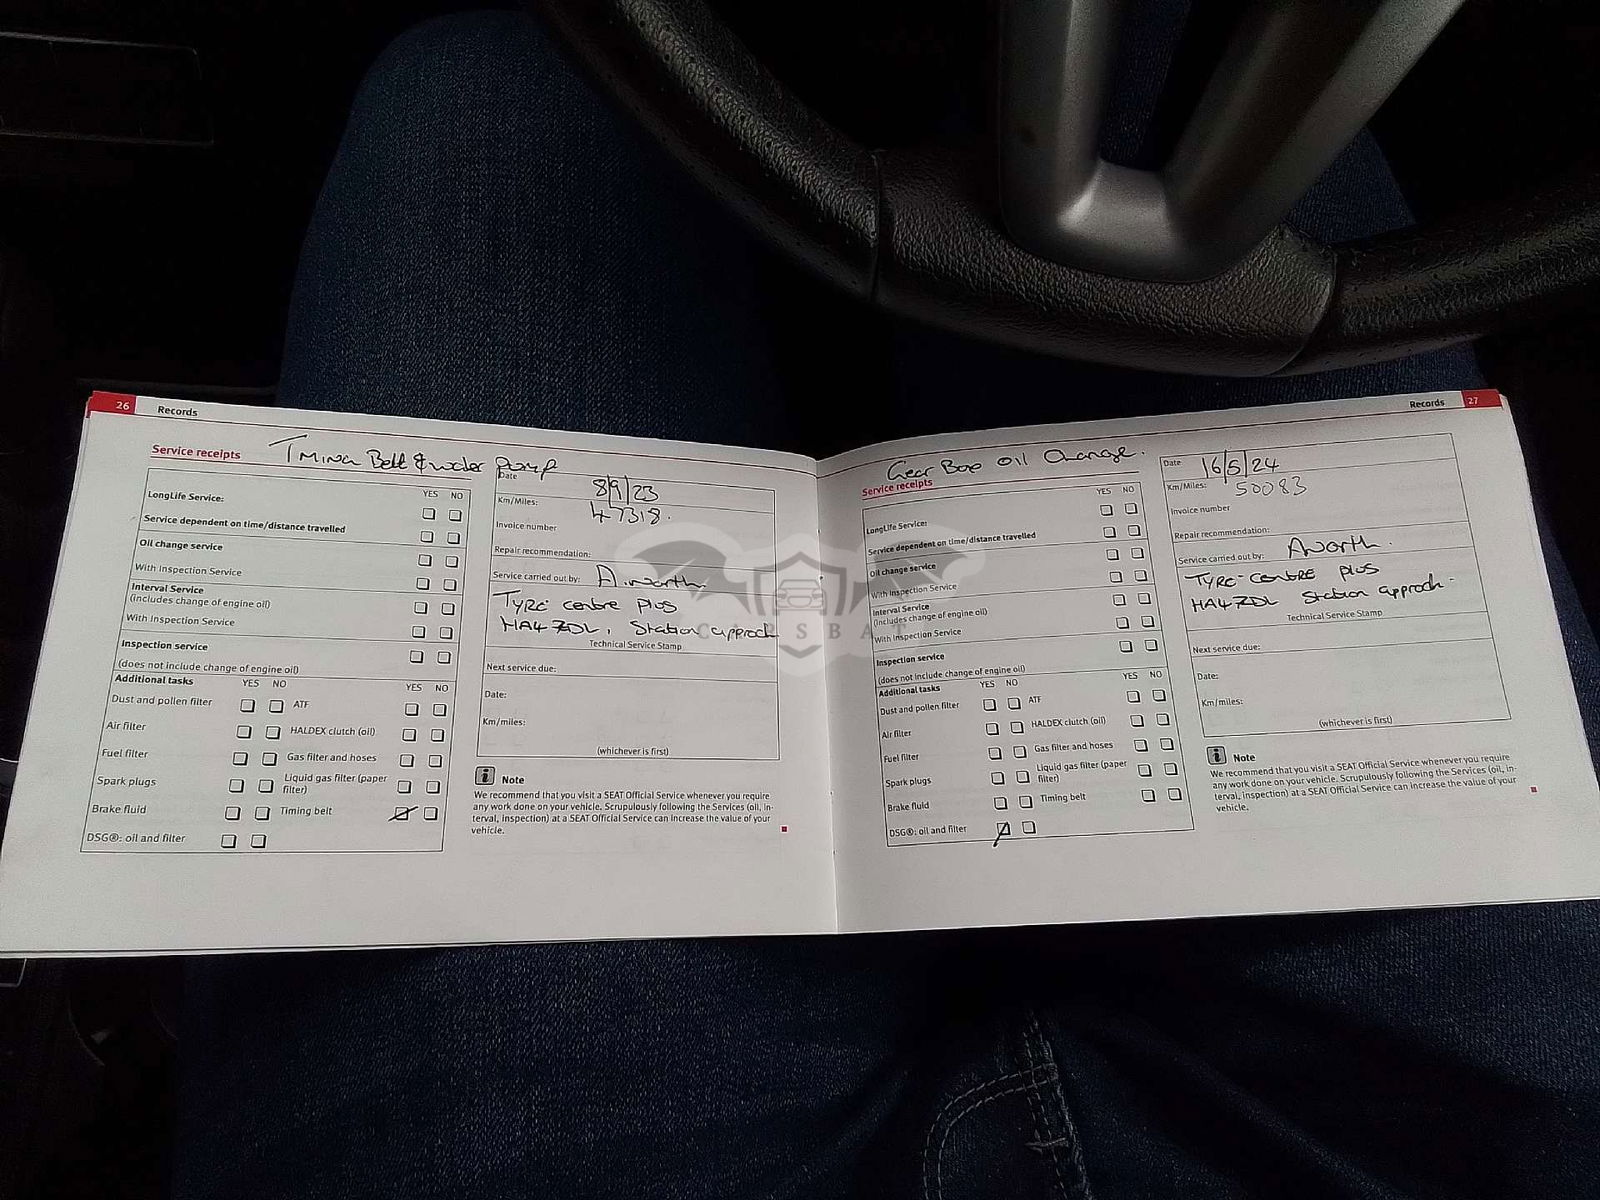 26 Records
Service receipts Timing Belt & water pump
YES NO
LongLife Service:
Service dependent on time/distance travelled
Oil change service
With Inspection Service
Interval Service
(includes change of engine oil)
With Inspection Service
Inspection service
(does not include change of engine oil)
Additional tasks YES NO YES NO
Dust and pollen filter ATF
Air filter HALDEX clutch (oil)
Fuel filter Gas filter and hoses
Spark plugs Liquid gas filter (paper
filter)
Brake fluid Timing belt
DSG®: oil and filter
Date 8/9/23
Km/Miles: 47318.
Invoice number
Repair recommendation:
Service carried out by: A.worth
Tyre centre plus
HA4 7DL, Station approach
Technical Service Stamp
Next service due:
Date:
Km/miles:
(whichever is first)
Note
We recommend that you visit a SEAT Official Service whenever you require
any work done on your vehicle. Scrupulously following the Services (oil, in-
terval, inspection) at a SEAT Official Service can increase the value of your
vehicle.
Records 27
Gear Box oil Change.
Service receipts
YES NO
LongLife Service:
Service dependent on time/distance travelled
Oil change service
With Inspection Service
Interval Service
(includes change of engine oil)
With Inspection Service
Inspection service
(does not include change of engine oil)
Additional tasks YES NO YES NO
Dust and pollen filter ATF
Air filter HALDEX clutch (oil)
Fuel filter Gas filter and hoses
Spark plugs Liquid gas filter (paper
filter)
Brake fluid Timing belt
DSG®: oil and filter
Date 16/5/24
Km/Miles: 50083
Invoice number
Repair recommendation:
Service carried out by: A.worth.
Tyre centre plus
HA4 7DL Station approach.
Technical Service Stamp
Next service due:
Date:
Km/miles:
(whichever is first)
Note
We recommend that you visit a SEAT Official Service whenever you require
any work done on your vehicle. Scrupulously following the Services (oil, in-
terval, inspection) at a SEAT Official Service can increase the value of your
vehicle.
CARSBAT